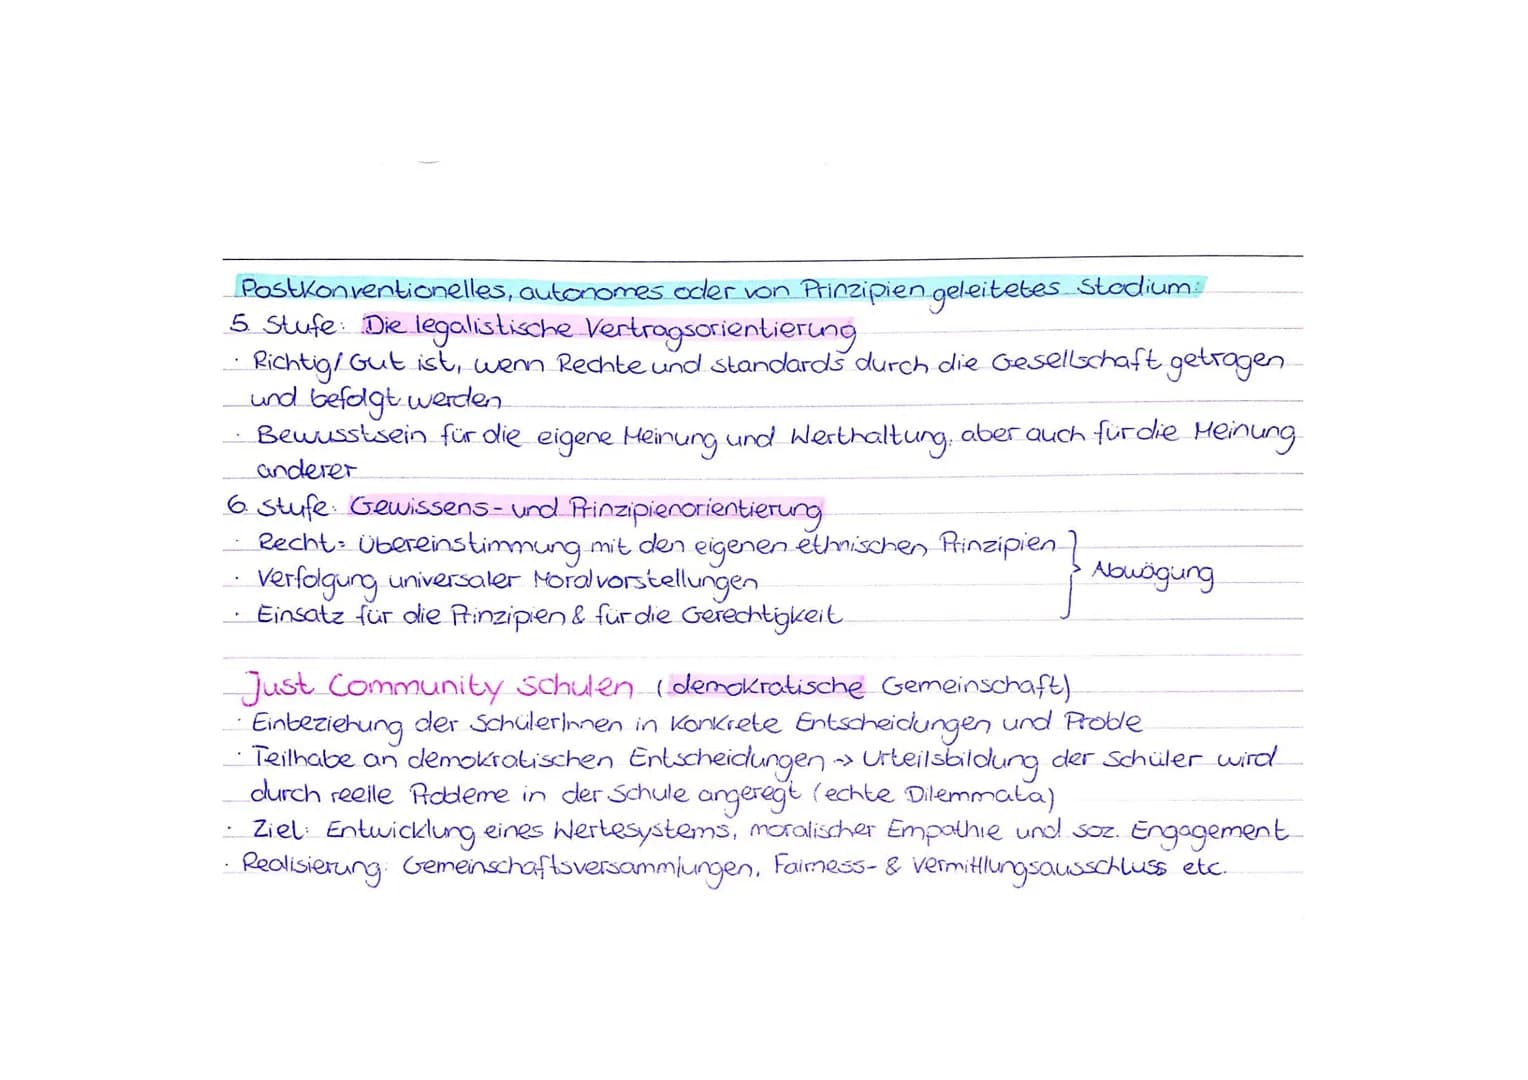 Postkonventionelles, autonomes oder von Prinzipien geleitetes Stadium:
5. Stufe: Die legalistische Vertragsorientierung
· Richtig/Gut ist, wenn Rechte und Standards durch die Gesellschaft getragen
und befolgt werden
· Bewusstsein für die eigene Meinung und Werthaltung, aber auch für die Meinung
anderer
6. Stufe: Gewissens- und Prinzipienorientierung
· Recht = Übereinstimmung mit den eigenen ethnischen Prinzipien
· Verfolgung universaler Moralvorstellungen
· Einsatz für die Prinzipien & für die Gerechtigkeit
Abwägung
Just Community Schulen (demokratische Gemeinschaft)
· Einbeziehung der SchülerInnen in konkrete Entscheidungen und Proble
· Teilhabe an demokratischen Entscheidungen -> Urteilsbildung der Schüler wird
durch reelle Probleme in der Schule angeregt (echte Dilemmata)
· Ziel: Entwicklung eines Wertesystems, moralischer Empathie und soz. Engagement
· Realisierung: Gemeinschaftsversammlungen, Fairness- & Vermittlungsausschluss etc.